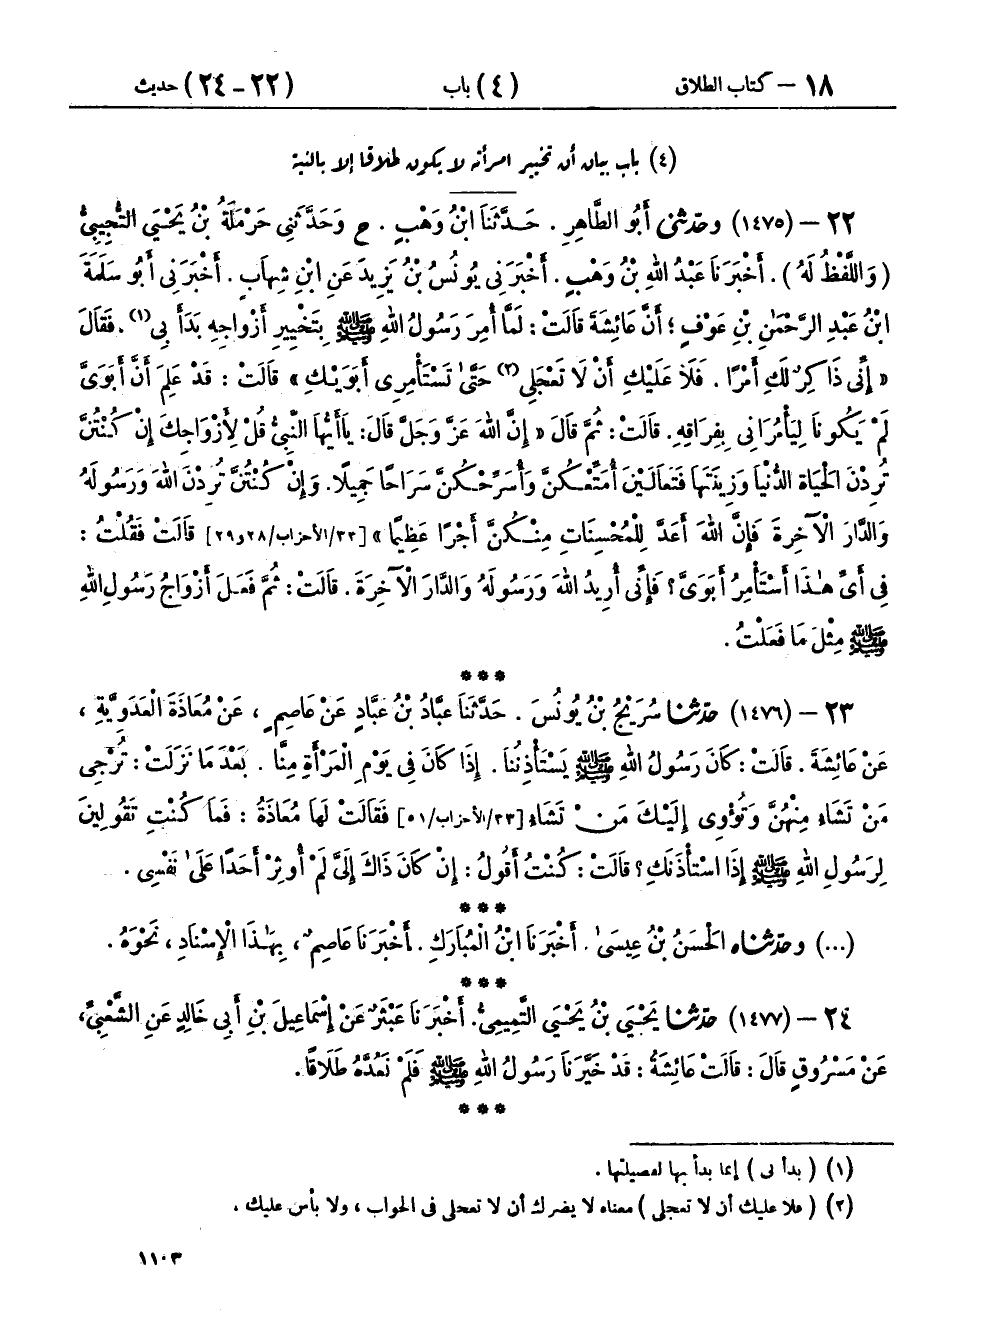 ١٨ – كتاب الطلاق (٤) باب (٢٢ – ٢٤) حديث
(٤) باب بيان أن تخيير امرأته لا يكون طلاقا إلا بالنية
٢٢ – (١٤٧٥) وحدثني أَبُو الطَّاهِرِ . حَدَّثَنَا ابْنُ وَهْبٍ . ح وَحَدَّثَنِي حَرْمَلَةُ بْنُ يَحْيَى التُّجِيبِيُّ
( وَاللَّفْظُ لَهُ ) . أَخْبَرَنَا عَبْدُ اللهِ بْنُ وَهْبٍ . أَخْبَرَنِي يُونُسُ بْنُ يَزِيدَ عَنِ ابْنِ شِهَابٍ . أَخْبَرَنِي أَبُو سَلَمَةَ
ابْنُ عَبْدِ الرَّحْمَٰنِ بْنِ عَوْفٍ ؛ أَنَّ عَائِشَةَ قَالَتْ : لَمَّا أُمِرَ رَسُولُ اللهِ ﷺ بِتَخْيِيرِ أَزْوَاجِهِ بَدَأَ بِي(١) . فَقَالَ
« إِنِّي ذَاكِرٌ لَكِ أَمْرًا . فَلَا عَلَيْكِ أَنْ لَا تَعْجَلِي(٢) حَتَّىٰ تَسْتَأْمِرِي أَبَوَيْكِ » قَالَتْ : قَدْ عَلِمَ أَنَّ أَبَوَيَّ
لَمْ يَكُونَا لِيَأْمُرَانِي بِفِرَاقِهِ. قَالَتْ: ثُمَّ قَالَ « إِنَّ اللهَ عَزَّ وَجَلَّ قَالَ: يَاأَيُّهَا النَّبِيُّ قُلْ لِأَزْوَاجِكَ إِنْ كُنْتُنَّ
تُرِدْنَ الْحَيَاةَ الدُّنْيَا وَزِينَتَهَا فَتَعَالَيْنَ أُمَتِّعْكُنَّ وَأُسَرِّحْكُنَّ سَرَاحًا جَمِيلًا. وَإِنْ كُنْتُنَّ تُرِدْنَ اللهَ وَرَسُولَهُ
وَالدَّارَ الْآخِرَةَ فَإِنَّ اللهَ أَعَدَّ لِلْمُحْسِنَاتِ مِنْكُنَّ أَجْرًا عَظِيمًا » [٣٣/الأحزاب/٢٨و٢٩] قَالَتْ فَقُلْتُ :
فِي أَيِّ هٰذَا أَسْتَأْمِرُ أَبَوَيَّ ؟ فَإِنِّي أُرِيدُ اللهَ وَرَسُولَهُ وَالدَّارَ الْآخِرَةَ . قَالَتْ : ثُمَّ فَعَلَ أَزْوَاجُ رَسُولِ اللهِ
ﷺ مِثْلَ مَا فَعَلْتُ .
***
٢٣ – (١٤٧٦) حدثنا سُرَيْجُ بْنُ يُونُسَ . حَدَّثَنَا عَبَّادُ بْنُ عَبَّادٍ عَنْ عَاصِمٍ ، عَنْ مُعَاذَةَ الْعَدَوِيَّةِ ،
عَنْ عَائِشَةَ . قَالَتْ : كَانَ رَسُولُ اللهِ ﷺ يَسْتَأْذِنُنَا . إِذَا كَانَ فِي يَوْمِ الْمَرْأَةِ مِنَّا . بَعْدَ مَا نَزَلَتْ : تُرْجِي
مَنْ تَشَاءُ مِنْهُنَّ وَتُؤْوِي إِلَيْكَ مَنْ تَشَاءُ [٣٣/الأحزاب/٥١] فَقَالَتْ لَهَا مُعَاذَةُ : فَمَا كُنْتِ تَقُولِينَ
لِرَسُولِ اللهِ ﷺ إِذَا اسْتَأْذَنَكِ ؟ قَالَتْ : كُنْتُ أَقُولُ : إِنْ كَانَ ذَاكَ إِلَيَّ لَمْ أُوثِرْ أَحَدًا عَلَىٰ نَفْسِي .
***
(...) وحدثناه الْحَسَنُ بْنُ عِيسَىٰ . أَخْبَرَنَا ابْنُ الْمُبَارَكِ . أَخْبَرَنَا عَاصِمٌ ، بِهٰذَا الْإِسْنَادِ ، نَحْوَهُ .
***
٢٤ – (١٤٧٧) حدثنا يَحْيَى بْنُ يَحْيَى التَّمِيمِيُّ. أَخْبَرَنَا عَبْثَرٌ عَنْ إِسْمَاعِيلَ بْنِ أَبِي خَالِدٍ عَنِ الشَّعْبِيِّ،
عَنْ مَسْرُوقٍ قَالَ : قَالَتْ عَائِشَةُ : قَدْ خَيَّرَنَا رَسُولُ اللهِ ﷺ فَلَمْ نَعُدَّهُ طَلَاقًا.
***
(١) ( بدأ بى ) إنما بدأ بها لفضيلتها .
(٢) ( فلا عليك أن لا تعجلى ) معناه لا يضرك أن لا تعجلى فى الجواب ، ولا بأس عليك .
١١٠٣